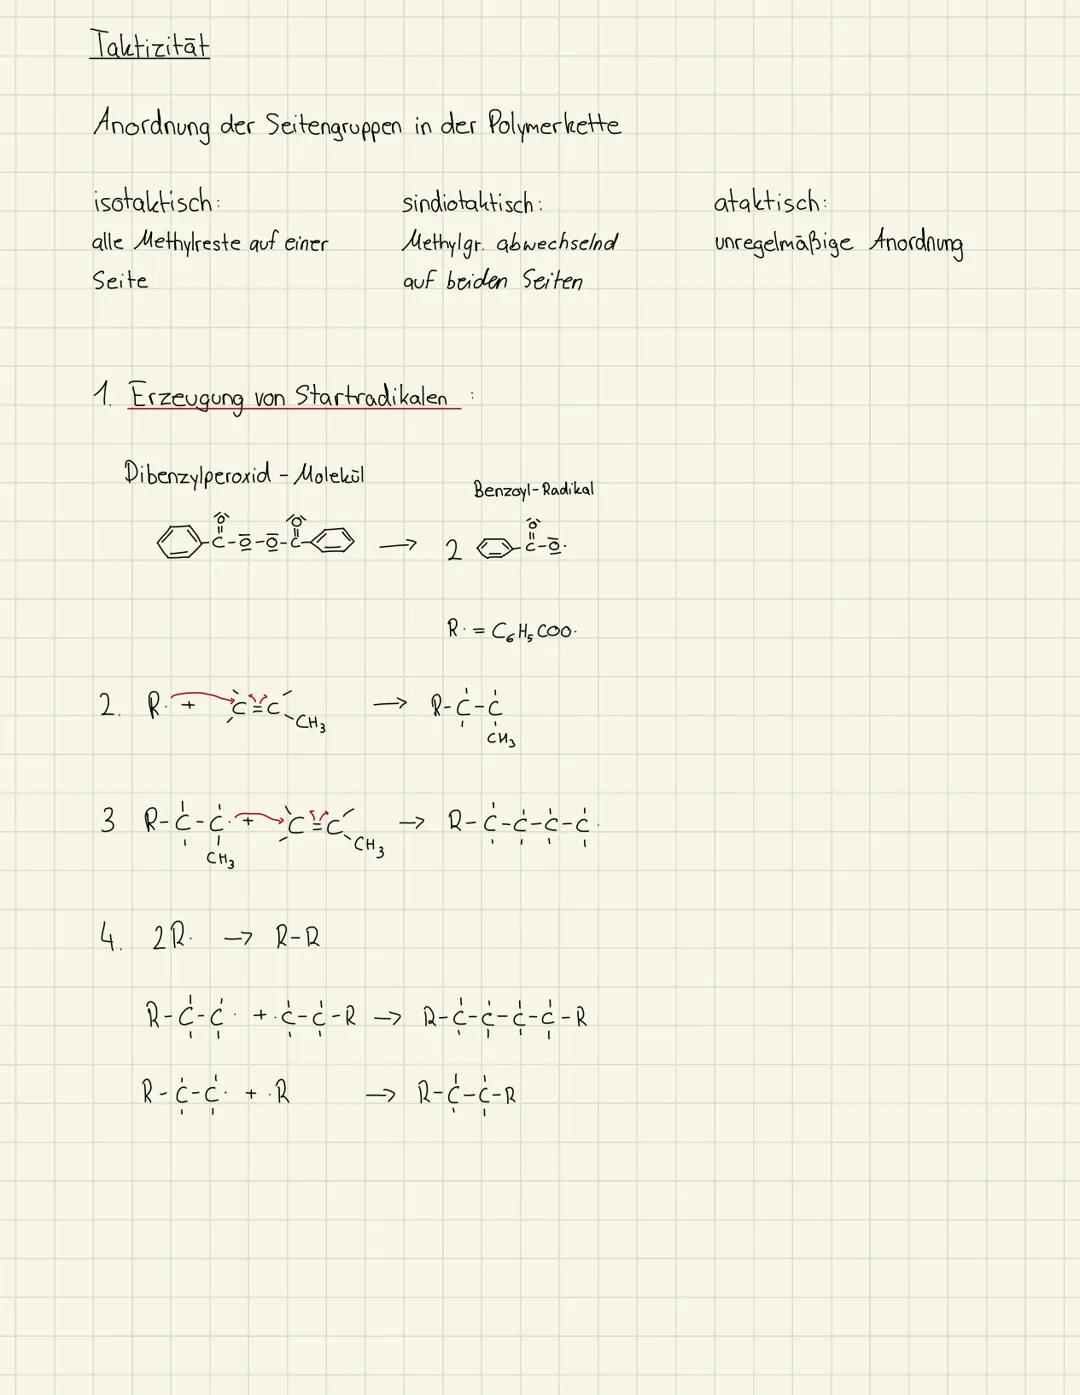 Taktizität
Anordnung der Seitengruppen in der Polymerkette
isotaktisch:
alle Methylreste auf einer
Seite
sindiotaktisch:
Methylgr. abwechselnd
auf beiden Seiten
ataktisch:
unregelmäßige Anordnung
1. Erzeugung von Startradikalen :
Dibenzylperoxid - Molekül
Benzoyl-Radikal
C-O-O-C → 2 C-O·
R· = C6H5COO·
2. R· + C=C CH3 → R-C-C CH3
3 R-C-C· + C=C CH3 → R-C-C-C-C·
CH3
4. 2R· → R-R
R-C-C· + ·C-C-R → R-C-C-C-C-R
R-C-C· + ·R → R-C-C-R